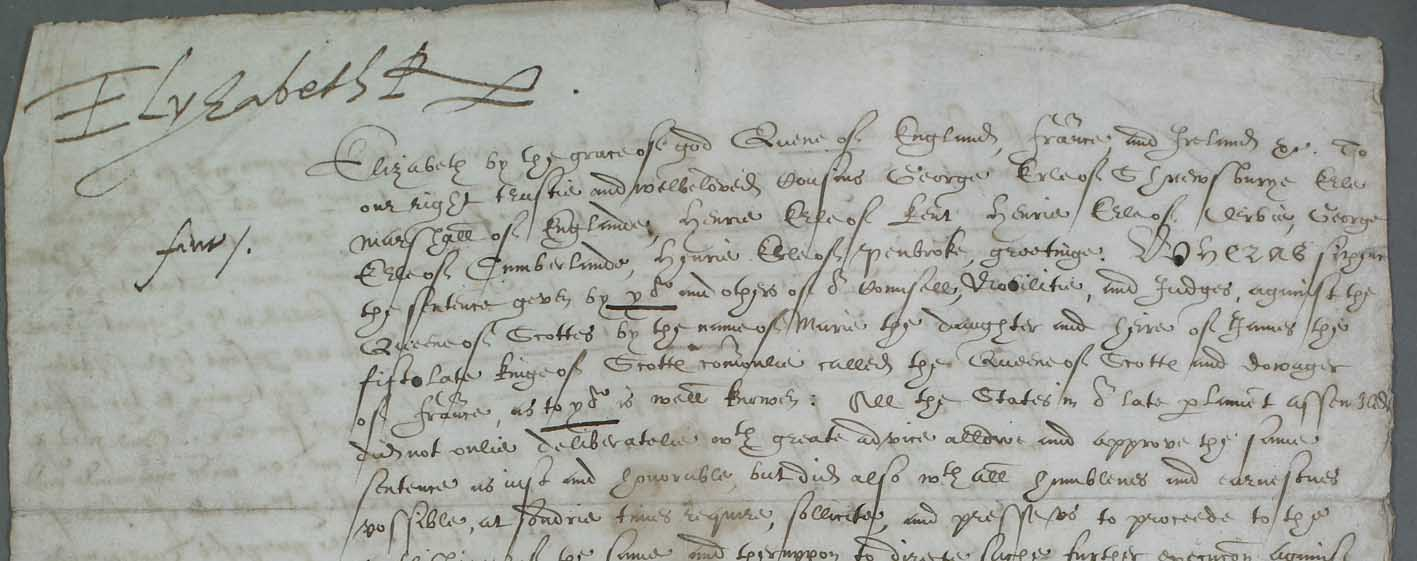 Elyzabeth R
Elizabeth by the grace of god Quene of England, france, and Ireland &c. To
our right trustie and welbeloved Cousins George Erle of Shrewsburye Erle
marshall of Englande, Henrie Erle of Kent Henrie Erle of Derbie, George
Erle of Cumberlande, Henrie Erle of Penbroke, greetinge. Wheras sithence
the sentence geven by yo^u and others of o^r Counsell, Nobilitie, and Judges, against the
Queene of Scottes by the name of Marie the daughter and heire of James the
fifte late kinge of Scott? comonlie called the Queene of Scott? and dowager
of france, as to yo^u is well knowen: All the States in o^r late parliamet assembled
did not onlie deliberatelie w^th greate advice allowe and approve the same
sentence as iust and honorable, but did also w^th all humblenes and earnestnes
possible, at sondrie times require, sollicite, and presse vs to proceede to the
of the same and therevppon to directe suche further execucon against